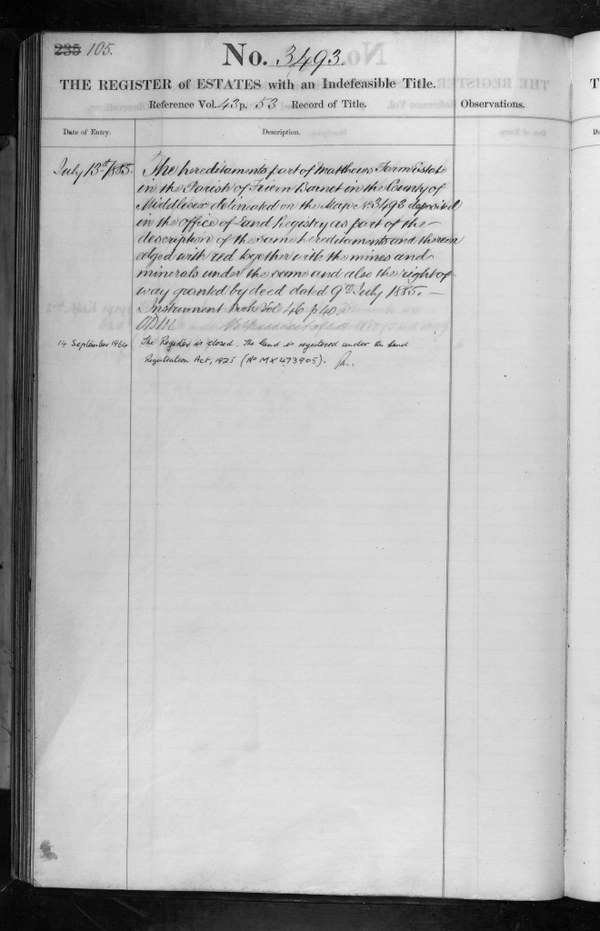 235 105.
No. 3493.
THE REGISTER of ESTATES with an Indefeasible Title.
Reference Vol. 43 p. 53 Record of Title.
Observations.
Date of Entry.
Description.
July 13th 1885.
The hereditaments part of Matthews Farm Estate
in the Parish of Friern Barnet in the County of
Middlesex delineated on the Map No 3493 deposited
in the office of Land Registry as part of the
description of the same hereditaments and thereon
edged with red together with the mines and
minerals under the same and also the right of
way granted by deed dated 9th July 1885. —
Instrument Book Vol 46 p 40.
14 September 1964
The Register is closed. The land is registered under the Land
Registration Act, 1925 (No MX 473905).